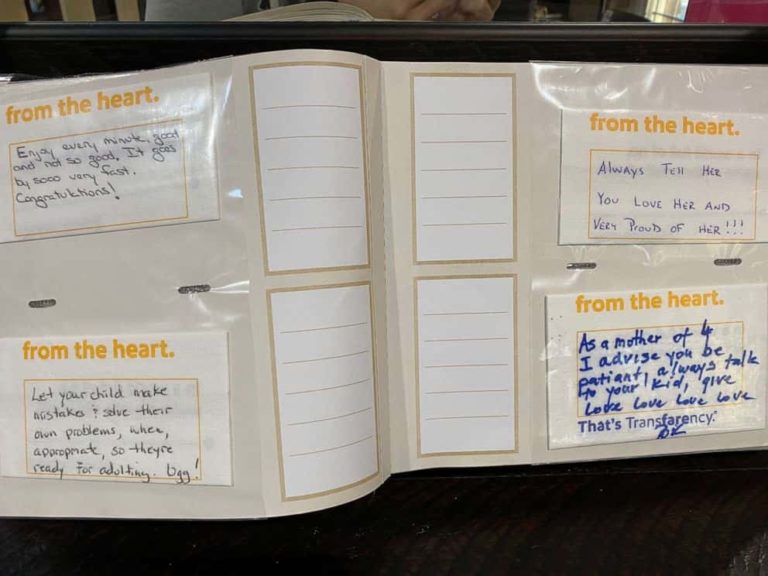 from the heart.
Enjoy every minute, good
and not so good. It goes
by sooo very fast.
Congratulations!
from the heart.
Let your child make
mistakes & solve their
own problems, when,
appropriate, so they're
ready for adulting. Ugg!
from the heart.
ALWAYS TELL HER
YOU LOVE HER AND
VERY PROUD OF HER!!!
from the heart.
As a mother of 4
I advise you be
patiant, always talk
to your kid, give
love love love love
That's Transfarency.